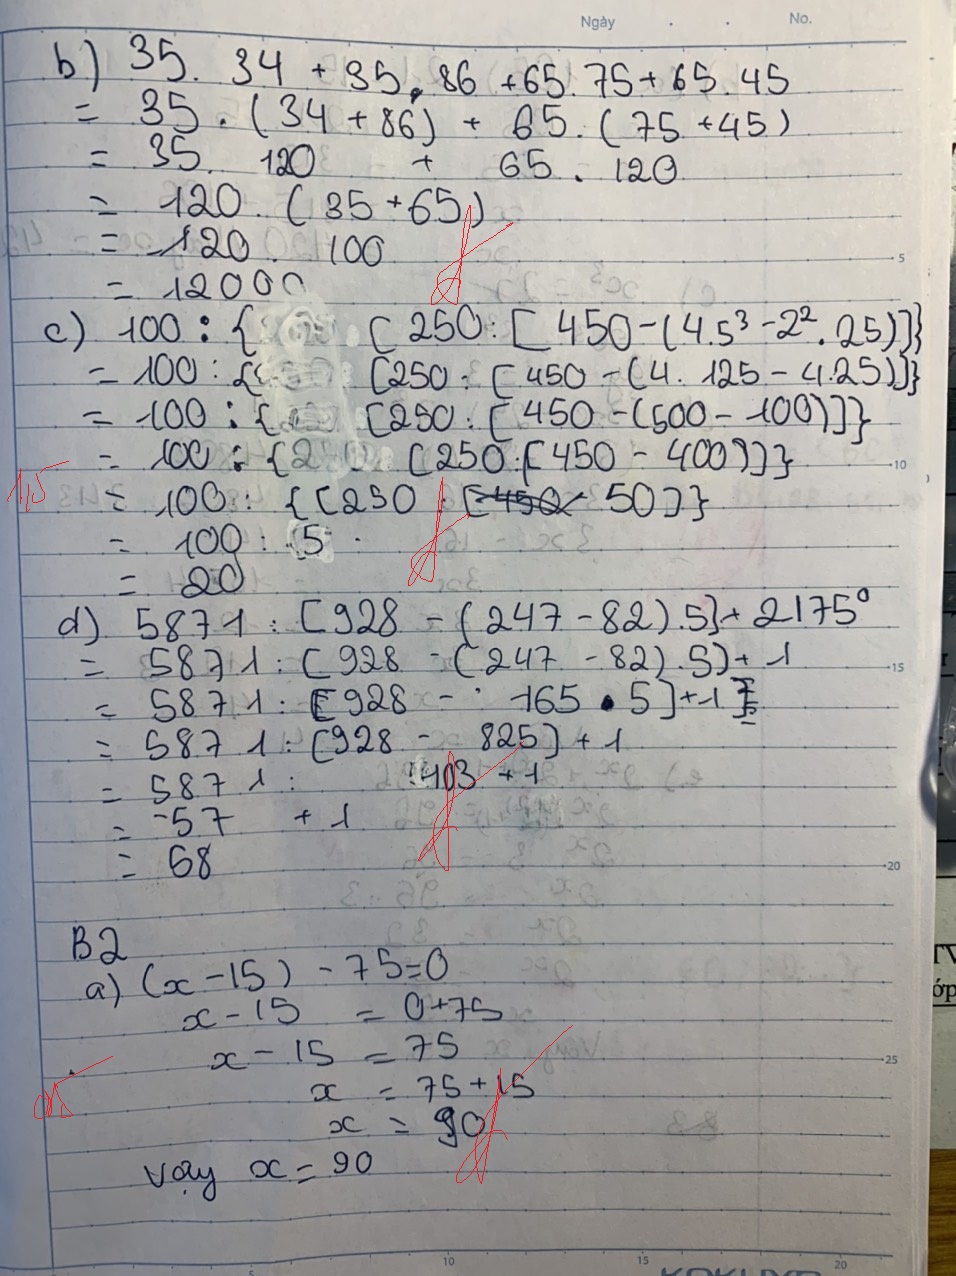 Ngày . . No.
b) 35. 34 + 35. 86 + 65. 75 + 65. 45
= 35. (34 + 86) + 65. (75 + 45)
= 35. 120 + 65. 120
= 120. (35 + 65)
= 120. 100
5
= 12000
c) 100 : { [250 : [450 - (4.5³ - 2². 25)]}
= 100 : { [250 : [450 - (4. 125 - 4.25)]}
= 100 : { [250 : [450 - (500 - 100)]]}
= 100 : { [250 : [450 - 400)]]}
10
1,5
= 100 : {[250 : [450 50]]}
= 100 : 5
= 20
d) 5871 : [928 - (247 - 82). 5] + 2175⁰
= 5871 : [928 - (247 - 82). 5] + 1
15
= 5871 : [928 - 165 . 5] + 1
= 5871 : [928 - 825] + 1
= 5871 : 103 + 1
= 57 + 1
= 58
20
B2
a) (x - 15) - 75 = 0
x - 15 = 0 + 75
x - 15 = 75
25
x = 75 + 15
x = 90
Vậy x = 90
5 10 15 20